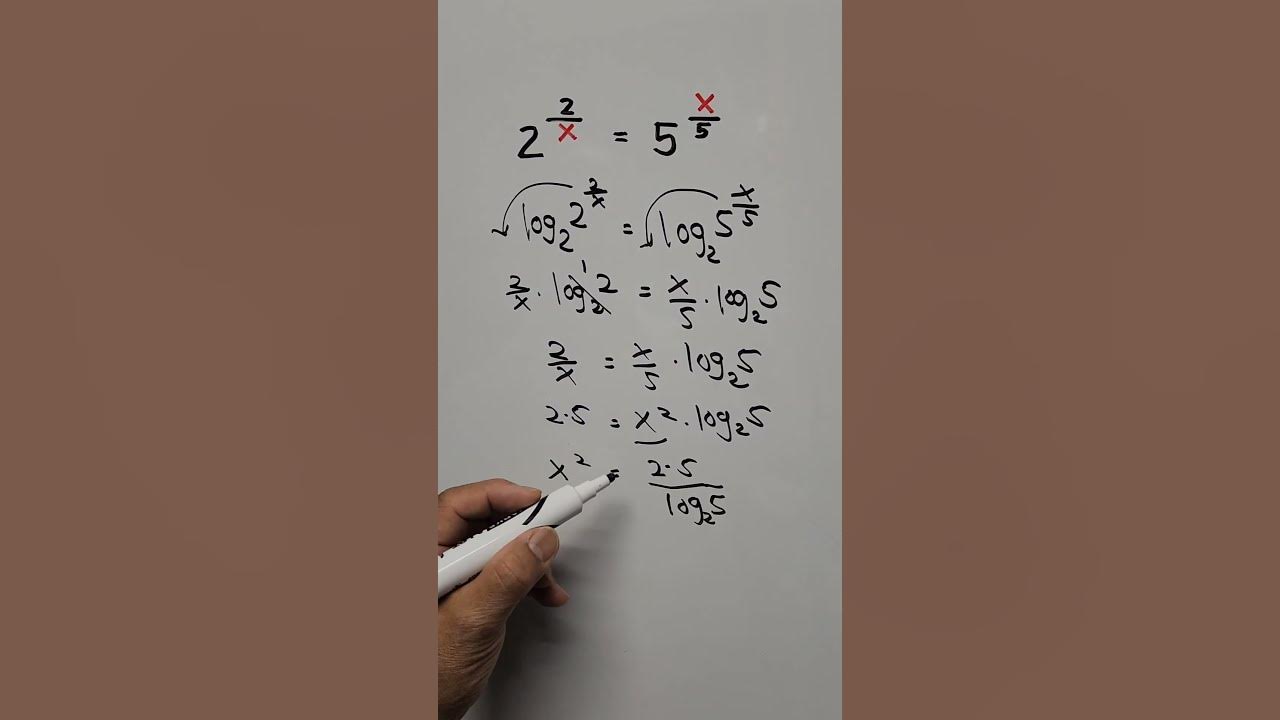 2^(2/x) = 5^(x/5)
log₂2^(2/x) = log₂5^(x/5)
2/x · log₂2 1 = x/5 · log₂5
2/x = x/5 · log₂5
2·5 = x² · log₂5
x² = 2·5/log₂5